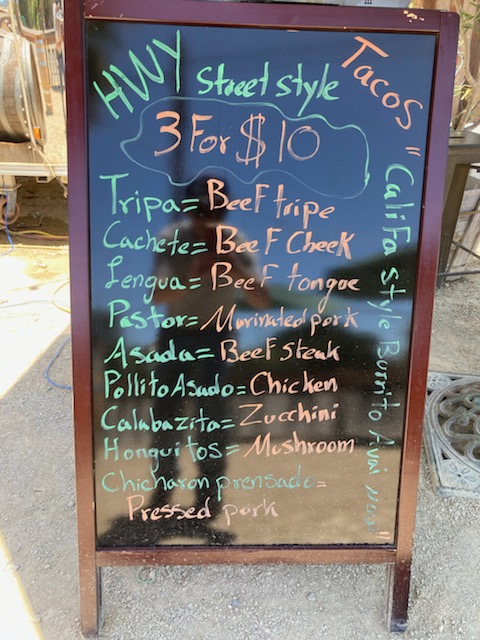 HWY Street style Tacos
3 For $10
Tripa = Beef tripe
Cachete = Beef Cheek
Lengua = Beef tongue
Pastor = Marinated pork
Asada = Beef Steak
Pollito Asado = Chicken
Calabazita = Zucchini
Honguitos = Mushroom
Chicharon prensado =
Pressed pork
"Califa style Burrito Avai Now"